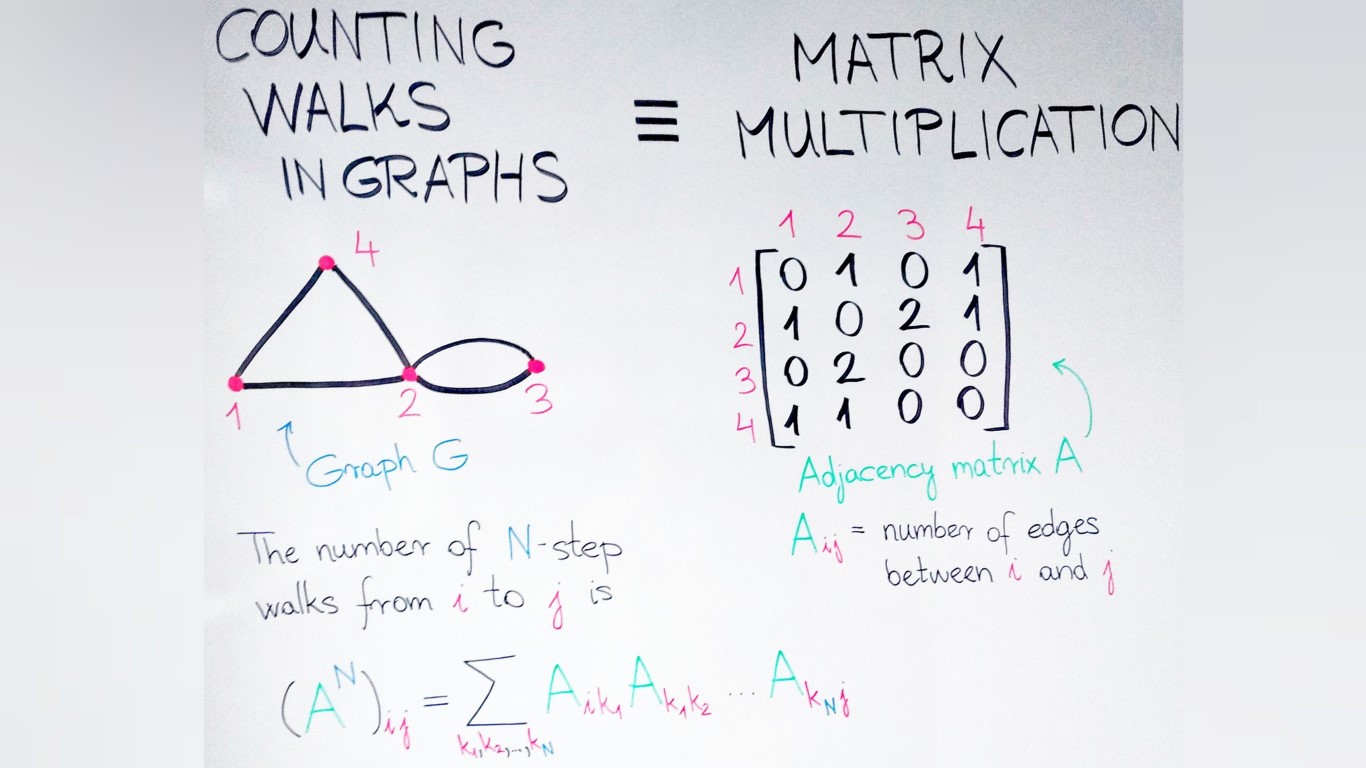 COUNTING
WALKS
IN GRAPHS
≡
MATRIX
MULTIPLICATION
4
1 2 3
Graph G
1 2 3 4
1 [0 1 0 1]
2 [1 0 2 1]
3 [0 2 0 0]
4 [1 1 0 0]
Adjacency matrix A
A_ij = number of edges
between i and j
The number of N-step
walks from i to j is
(A^N)_ij = ∑_{k₁,k₂,...,k_N} A_{ik₁} A_{k₁k₂} ... A_{k_N j}